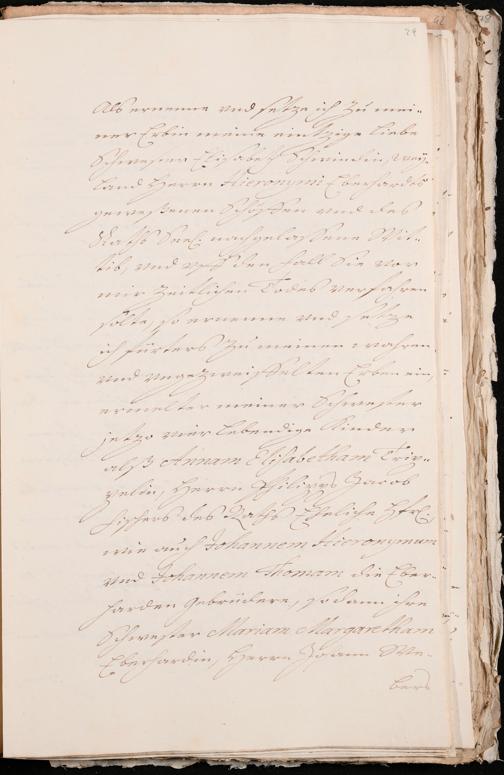 29
Als ernenne vnd setze ich zu mei-
ner Erbin meine eintzige liebe
Schwester Elisabeth Schwindin, wey-
land Herrn Hieronymi Eberhardts
geweßenen Schöffen vnd des
Raths Seel. nachgelassene Wit-
tib, vnd vff den fall Sie vor
mir zeitlichen Todes verfahren
solte, so ernenne vnd setze
ich fürters zu meinen wahren
vnd vngezweiffelten Erben ein,
ermelter meiner Schwester
jetzo vier lebendige Kinder
alß Annam Elisabetham
Herrn Philipps Jacob
Fischers des Raths Eheliche
wie auch Johannem Hieronymum
vnd Johannem Thomam die Eber-
harden Gebrüdere, sodann ihre
Schwester Mariam Margaretham
Eberhardin, Herrn Johann We-
bers